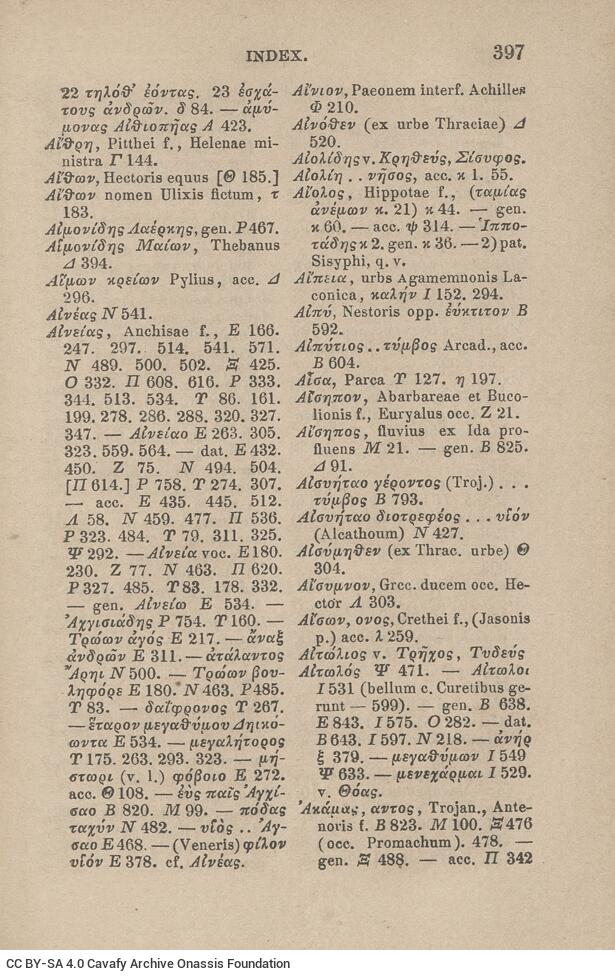 INDEX. 397
22 τηλόθ' ἐόντας. 23 ἐσχά-
τους ἀνδρῶν. δ 84. — ἀμύ-
μονας Αἰθιοπῆας Α 423.
Αἴθρη, Pitthei f., Helenae mi-
nistra Γ 144.
Αἴθων, Hectoris equus [Θ 185.]
Αἴθων nomen Ulixis fictum, τ
183.
Αἱμονίδης Λαέρκης, gen. Ρ 467.
Αἱμονίδης Μαίων, Thebanus
Δ 394.
Αἵμων κρείων Pylius, acc. Δ
296.
Αἰνέας Ν 541.
Αἰνείας, Anchisae f., Ε 166.
247. 297. 514. 541. 571.
Ν 489. 500. 502. Ξ 425.
Ο 332. Π 608. 616. Ρ 333.
344. 513. 534. Τ 86. 161.
199. 278. 286. 288. 320. 327.
347. — Αἰνείαο Ε 263. 305.
323. 559. 564. — dat. Ε 432.
450. Ζ 75. Ν 494. 504.
[Π 614.] Ρ 758. Τ 274. 307.
— acc. Ε 435. 445. 512.
Λ 58. Ν 459. 477. Π 536.
Ρ 323. 484. Τ 79. 311. 325.
Ψ 292. — Αἰνεία voc. Ε 180.
230. Ζ 77. Ν 463. Π 620.
Ρ 327. 485. Τ 83. 178. 332.
— gen. Αἰνείω Ε 534. —
Ἀχγισιάδης Ρ 754. Τ 160. —
Τρώων ἀγός Ε 217. — ἄναξ
ἀνδρῶν Ε 311. — ἀτάλαντος
Ἄρηι Ν 500. — Τρώων βου-
ληφόρε Ε 180. Ν 463. Ρ 485.
Τ 83. — δαΐφρονος Τ 267.
— ἕταρον μεγαθύμου Δηικό-
ωντα Ε 534. — μεγαλήτορος
Τ 175. 263. 293. 323. — μή-
στωρι (v. l.) φόβοιο Ε 272.
acc. Θ 108. — ἐῢς παῖς Ἀγχί-
σαο Β 820. Μ 99. — πόδας
ταχύν Ν 482. — υἱός .. Ἀγ-
σαο Ε 468. — (Veneris) φίλον
υἱόν Ε 378. cf. Αἰνέας.
Αἴνιον, Paeonem interf. Achilles
Φ 210.
Αἰνόθεν (ex urbe Thraciae) Δ
520.
Αἰολίδης v. Κρηθεύς, Σίσυφος.
Αἰολίη .. νῆσος, acc. κ 1. 55.
Αἴολος, Hippotae f., (ταμίας
ἀνέμων κ. 21) κ 44. — gen.
κ 60. — acc. ψ 314. — Ἱππο-
τάδης κ 2. gen. κ 36. — 2) pat.
Sisyphi, q. v.
Αἴπεια, urbs Agamemnonis La-
conica, καλήν Ι 152. 294.
Αἰπύ, Nestoris opp. ἐύκτιτον Β
592.
Αἰπύτιος .. τύμβος Arcad., acc.
Β 604.
Αἶσα, Parca Τ 127. η 197.
Αἴσηπον, Abarbareae et Buco-
lionis f., Euryalus occ. Ζ 21.
Αἴσηπος, fluvius ex Ida pro-
fluens Μ 21. — gen. Β 825.
Δ 91.
Αἰσυήταο γέροντος (Troj.) . . .
τύμβος Β 793.
Αἰσυήταο διοτρεφέος . . . υἱόν
(Alcathoum) Ν 427.
Αἰσύμηθεν (ex Thrac. urbe) Θ
304.
Αἴσυμνον, Grec. ducem occ. He-
ctor Λ 303.
Αἴσων, ονος, Crethei f., (Jasonis
p.) acc. λ 259.
Αἰτώλιος v. Τρῆχος, Τυδεύς
Αἰτωλός Ψ 471. — Αἰτωλοι
Ι 531 (bellum c. Curetibus ge-
runt — 599). — gen. Β 638.
Ε 843. Ι 575. Ο 282. — dat.
Β 643. Ι 597. Ν 218. — ἀνήρ
ξ 379. — μεγαθύμων Ι 549
Ψ 633. — μενεχάρμαι Ι 529.
v. Θόας.
Ἀκάμας, αντος, Trojan., Ante-
noris f. Β 823. Μ 100. Ξ 476
(occ. Promachum). 478. —
gen. Ξ 488. — acc. Π 342
CC BY-SA 4.0 Cavafy Archive Onassis Foundation